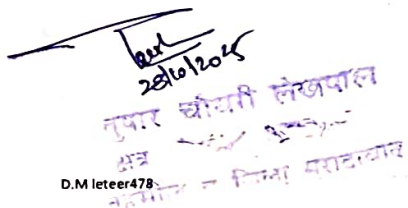 28/10/2025
तुषार चौधरी लेखपाल
क्षेत्र
D.M leteer478
तहसील व जिला मुरादाबाद